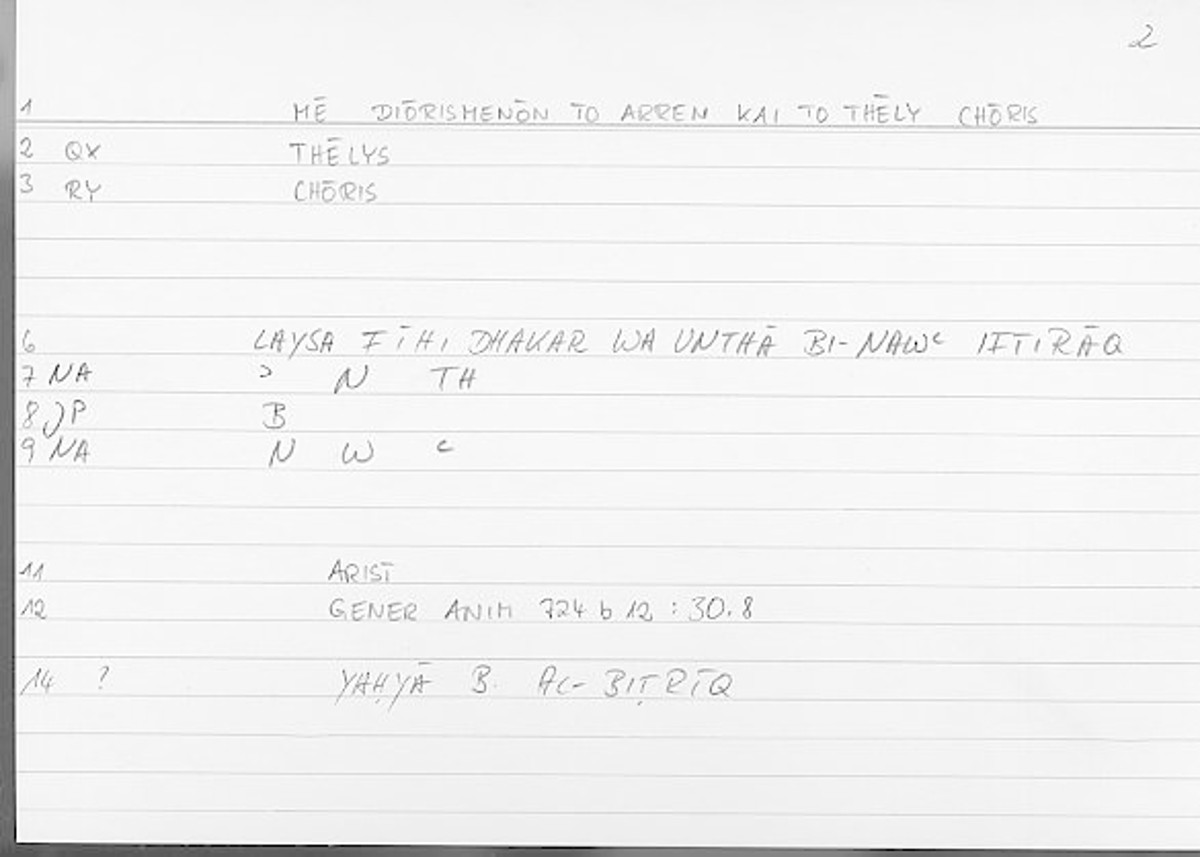 2
1 MĒ DIŌRISMENŌN TO ARREN KAI TO THĒLY CHŌRIS
2 QX THĒLYS
3 RY CHŌRIS
6 LAYSA FĪHI DHAKAR WA UNTHĀ BI-NAWʿ IFTIRĀQ
7 NA ʾ N TH
8 JP B
9 NA N W ʿ
11 ARIST
12 GENER ANIM 724 b 12 : 30.8
14 ? YAḤYĀ B. AL-BIṬRĪQ